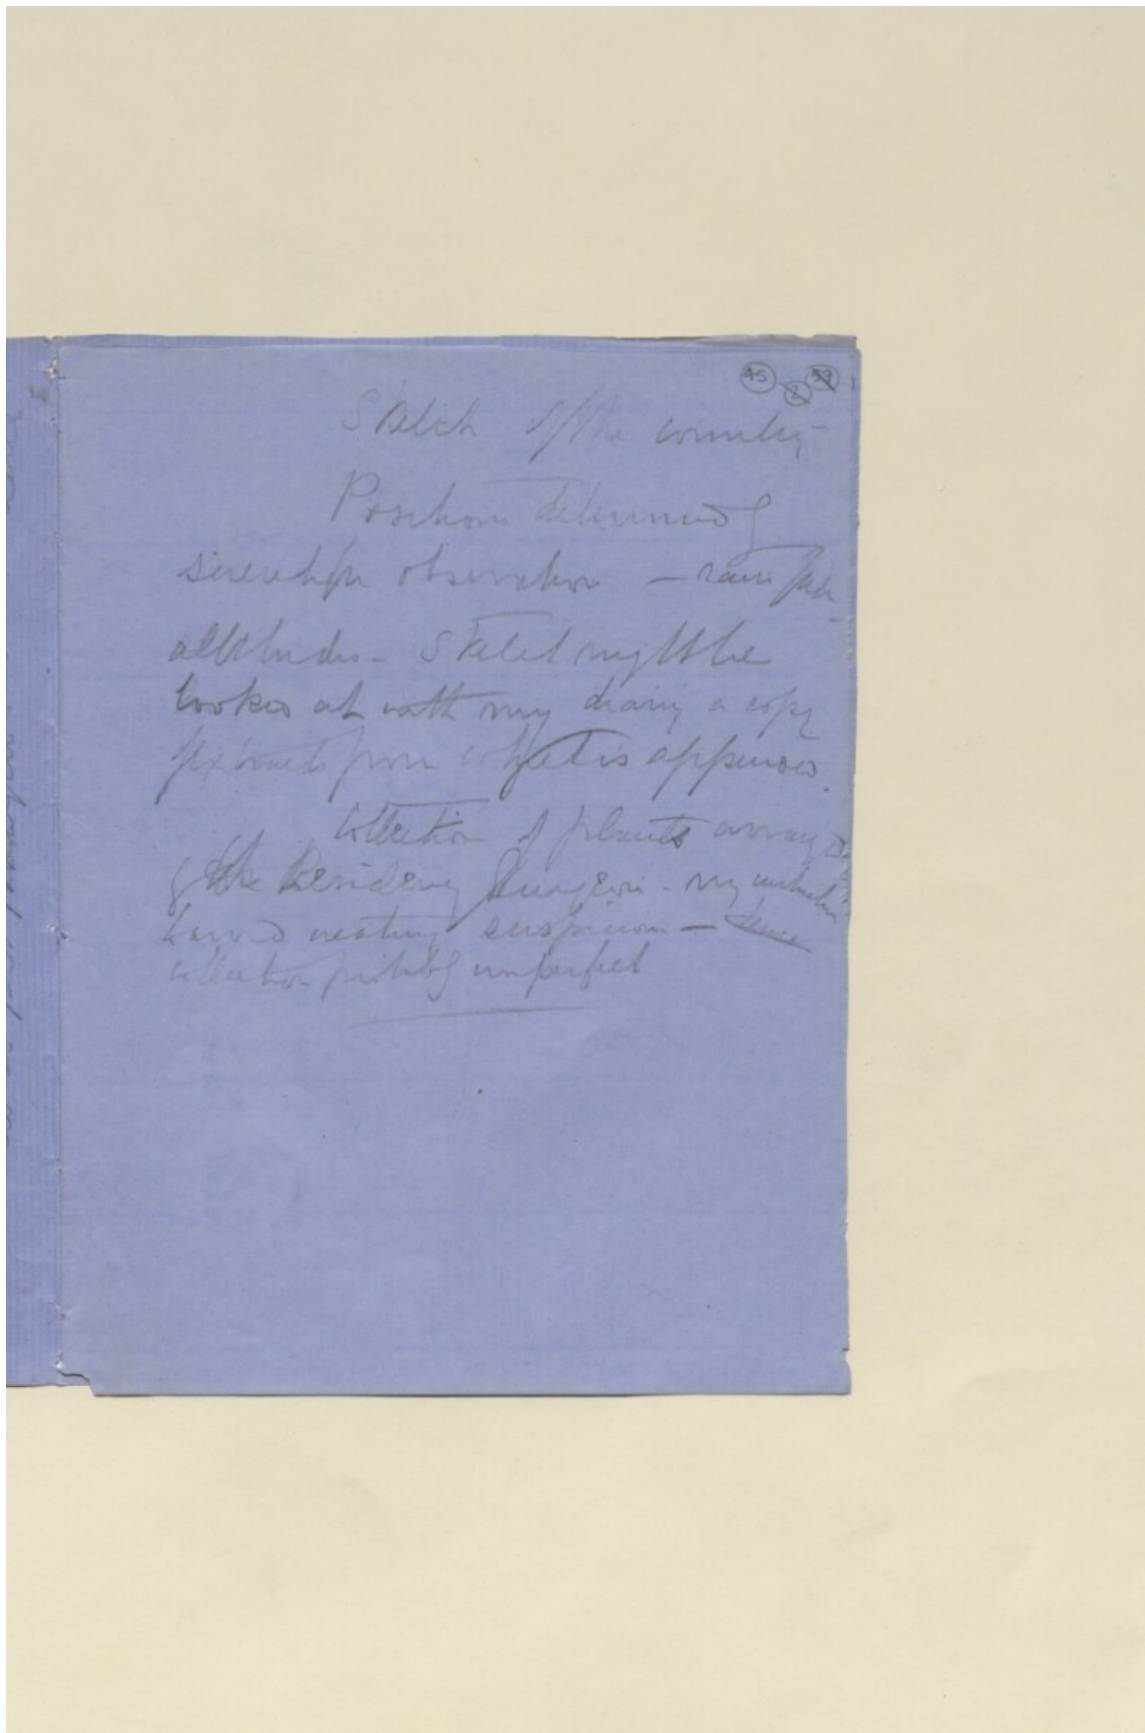 45 2 59
Sketch of the country
Positions determined by
scientific observation — same for
altitudes - Sketch might be
looked at with my diary a copy
of extracts from which is appended.
Collection of plants arranged
by the Residency Surgeon - my
avoid creating suspicion - hence
collection probably imperfect